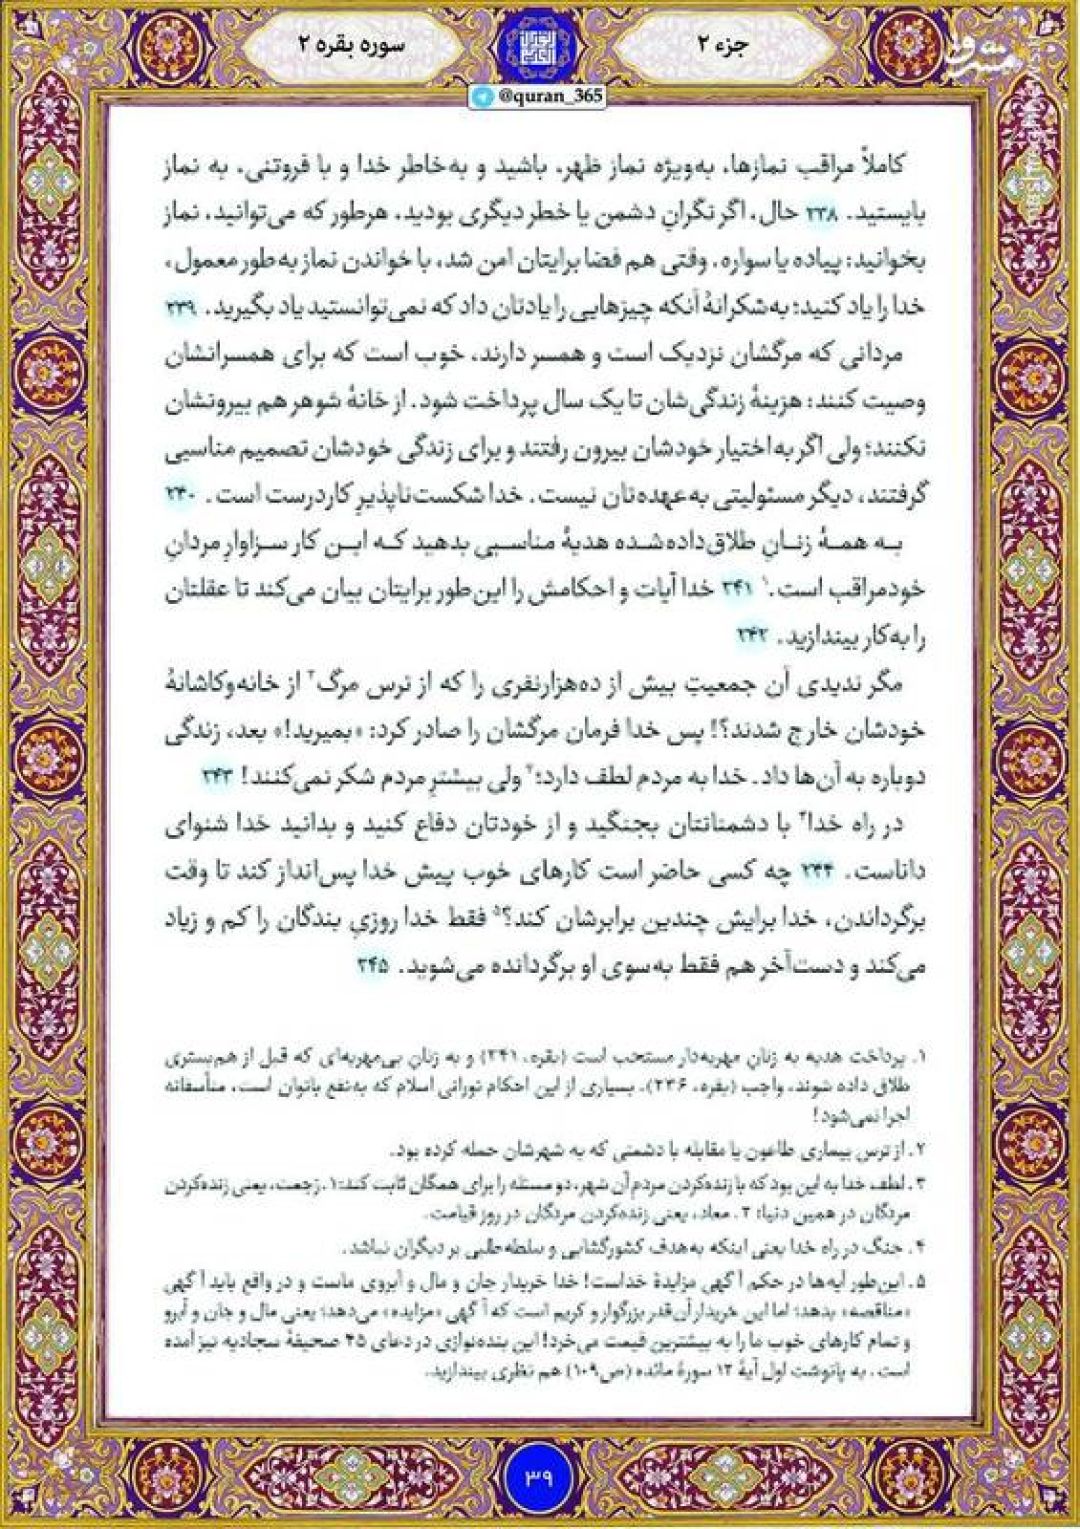 جزء ۲
سوره بقره ۲
@quran_365
مشرق
کاملاً مراقب نمازها، به‌ویژه نماز ظهر، باشید و به‌خاطر خدا و با فروتنی، به نماز
بایستید. ۲۳۸ حال، اگر نگرانِ دشمن یا خطر دیگری بودید، هرطور که می‌توانید، نماز
بخوانید: پیاده یا سواره. وقتی هم فضا برایتان امن شد، با خواندن نماز به‌طور معمول،
خدا را یاد کنید؛ به‌شکرانهٔ آنکه چیزهایی را یادتان داد که نمی‌توانستید یاد بگیرید. ۲۳۹
مردانی که مرگشان نزدیک است و همسر دارند، خوب است که برای همسرانشان
وصیت کنند: هزینهٔ زندگی‌شان تا یک سال پرداخت شود. از خانهٔ شوهر هم بیرونشان
نکنند؛ ولی اگر به‌اختیار خودشان بیرون رفتند و برای زندگی خودشان تصمیم مناسبی
گرفتند، دیگر مسئولیتی به‌عهده‌تان نیست. خدا شکست‌ناپذیرِ کاردرست است. ۲۴۰
به همهٔ زنانِ طلاق‌داده‌شده هدیهٔ مناسبی بدهید که این کار سزاوارِ مردانِ
خودمراقب است.۱ ۲۴۱ خدا آیات و احکامش را این‌طور برایتان بیان می‌کند تا عقلتان
را به‌کار بیندازید. ۲۴۲
مگر ندیدی آن جمعیتِ بیش از ده‌هزارنفری را که از ترس مرگ۲ از خانه‌وکاشانهٔ
خودشان خارج شدند؟! پس خدا فرمان مرگشان را صادر کرد: «بمیرید!» بعد، زندگی
دوباره به آن‌ها داد. خدا به مردم لطف دارد؛۳ ولی بیشترِ مردم شکر نمی‌کنند! ۲۴۳
در راه خدا۴ با دشمنانتان بجنگید و از خودتان دفاع کنید و بدانید خدا شنوای
داناست. ۲۴۴ چه کسی حاضر است کارهای خوب پیش خدا پس‌انداز کند تا وقت
برگرداندن، خدا برایش چندین برابرشان کند؟۵ فقط خدا روزیِ بندگان را کم و زیاد
می‌کند و دست‌آخر هم فقط به‌سوی او برگردانده می‌شوید. ۲۴۵
۱. پرداخت هدیه به زنانِ مهریه‌دار مستحب است (بقره، ۲۴۱) و به زنانِ بی‌مهریه‌ای که قبل از هم‌بستری
طلاق داده شوند، واجب (بقره، ۲۳۶). بسیاری از این احکام نورانی اسلام که به‌نفع بانوان است، متأسفانه
اجرا نمی‌شود!
۲. از ترس بیماری طاعون یا مقابله با دشمنی که به شهرشان حمله کرده بود.
۳. لطف خدا به این بود که با زنده‌کردن مردمِ آن شهر، دو مسئله را برای همگان ثابت کند: ۱. رجعت، یعنی زنده‌کردن
مردگان در همین دنیا؛ ۲. معاد، یعنی زنده‌کردن مردگان در روز قیامت.
۴. جنگ در راه خدا یعنی اینکه به‌هدف کشورگشایی و سلطه‌طلبی بر دیگران نباشد.
۵. این‌طور آیه‌ها در حکم آگهی مزایدهٔ خداست! خدا خریدار جان و مال و آبروی ماست و در واقع باید آگهی
«مناقصه» بدهد؛ اما این خریدار آن‌قدر بزرگوار و کریم است که آگهی «مزایده» می‌دهد؛ یعنی مال و جان و آبرو
و تمام کارهای خوب ما را به بیشترین قیمت می‌خرد! این بنده‌نوازی در دعای ۴۵ صحیفهٔ سجادیه نیز آمده
است. به پانوشت اول آیهٔ ۱۲ سورهٔ مائده (ص۱۰۹) هم نظری بیندازید.
۳۹